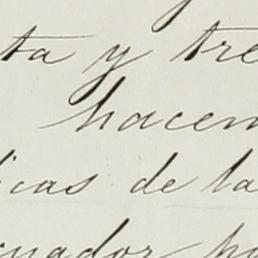 ta y tre
hacen
icas de la
uador